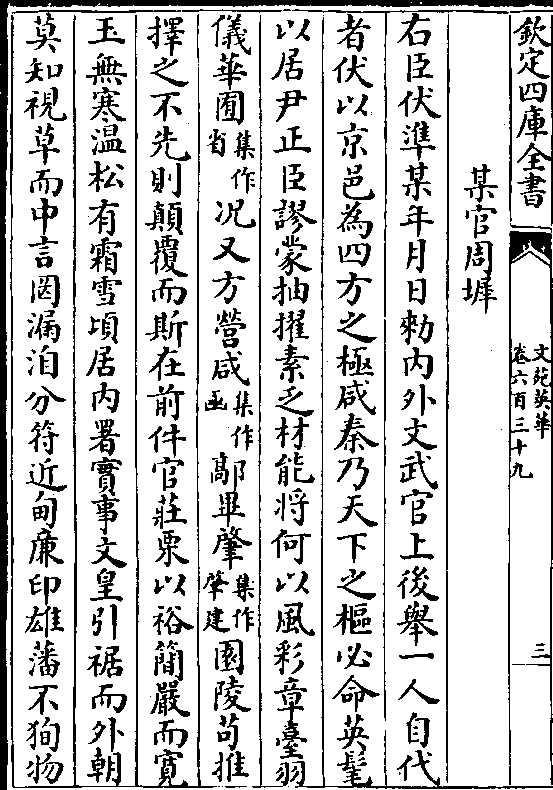 欽定四庫全書
文苑英華
卷六百三十九
三
某官周墀
右臣伏準某年月日勑内外文武官上後舉一人自代
者伏以京邑為四方之極咸秦乃天下之樞必命英髦
以居尹正臣謬蒙抽擢素乏材能將何以風彩章臺羽
儀華囿集作省况又方營咸集作函鄗畢肇集作肇建園陵苟推
擇之不先則顛覆而斯在前件官莊栗以裕簡嚴而寛
玉無寒温松有霜雪頃居内署實事文皇引裾而外朝
莫知視草而中言罔漏洎分符近甸廉印雄藩不狥物